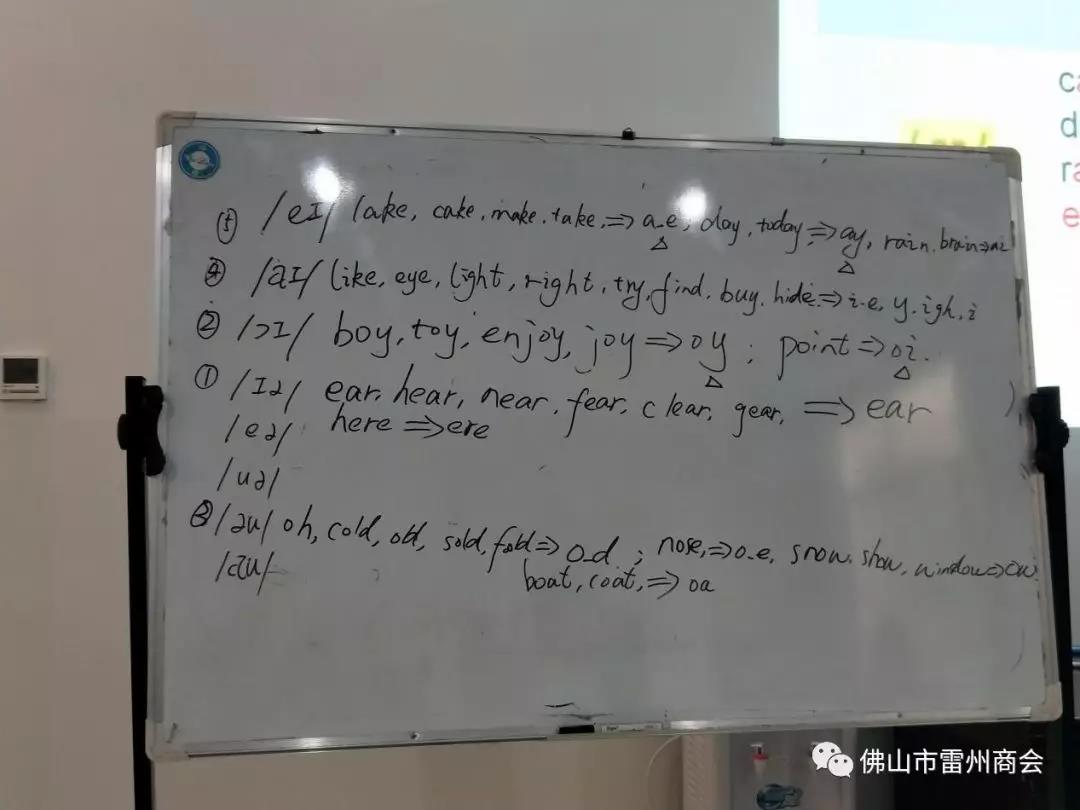 ⑤ /eɪ/ lake, cake, make, take, ⇒ a-e, day, today, ⇒ ay, rain, brain ⇒ ai
④ /aɪ/ like, eye, light, right, try, find, buy, hide ⇒ i-e, y, igh, i
② /ɔɪ/ boy, toy, enjoy, joy ⇒ oy; point ⇒ oi.
① /ɪə/ ear, hear, near, fear, clear, gear, ⇒ ear
/eə/ here ⇒ ere
/uə/
③ /əu/ oh, cold, old, sold, fold ⇒ o-d; nose, ⇒ o-e, snow, show, window ⇒ ow
boat, coat, ⇒ oa
/au/
ca
d
ra
e
佛山市雷州商会